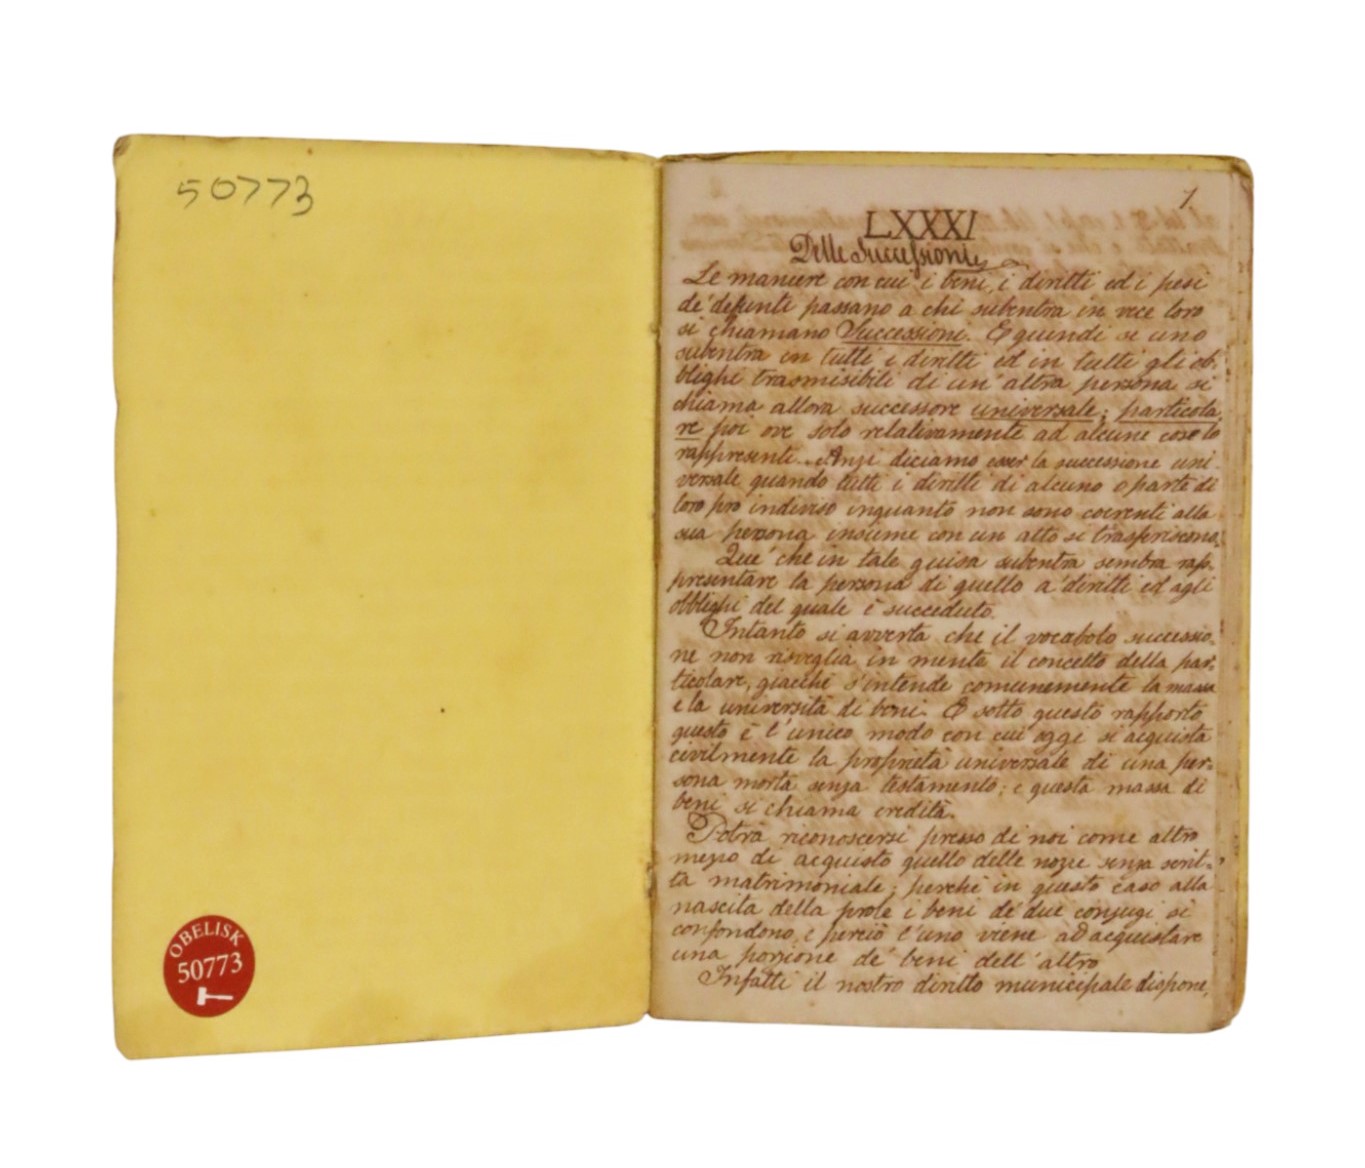 50773
OBELISK
50773
1
LXXXI
Delle Successioni
Le maniere con cui i beni, i diritti ed i pesi
de' defunti passano a chi subentra in vece loro
si chiamano Successioni. E quindi se uno
subentra in tutti i diritti ed in tutti gli ob-
blighi trasmisibili di un' altra persona si
chiama allora successore universale; particola
re poi ove solo relativamente ad alcune cose lo
rappresenti. Anzi diciamo esser la successione uni-
versale quando tutti i diritti di alcuno o parte di
loro pro indiviso inquanto non sono coerenti alla
sua persona insieme con un atto si trasferiscono.
Que' che in tale guisa subentra sembra rap-
presentare la persona di quello a' diritti ed agli
obblighi del quale è succeduto.
Intanto si avverta che il vocabolo successio-
ne non risveglia in mente il concetto della par-
ticolare, giacchè s'intende comunemente la massa
e la università di beni. E sotto questo rapporto
questo è l'unico modo con cui oggi si acquista
civilmente la proprietà universale di una per-
sona morta senza testamento; e questa massa di
beni si chiama eredità.
Potrà riconoscersi presso di noi come altro
mezzo di acquisto quello delle nozze senza scrit-
ta matrimoniale; perchè in questo caso alla
nascita della prole i beni de' due conjugi si
confondono, e perciò l'uno viene ad acquistare
una porzione de' beni dell' altro
Infatti il nostro diritto municipale dispone,